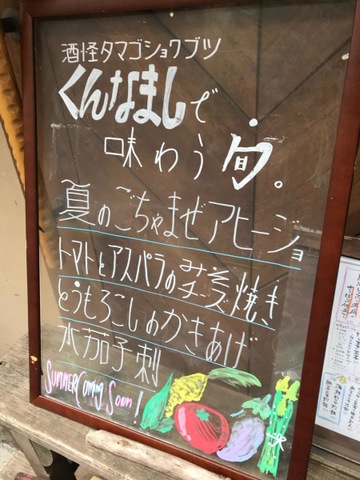 酒怪タマゴショクブツ
くんなましで
味わう旬。
夏のごちゃまぜアヒージョ
トマトとアスパラのみそチーズ焼き
とうもろこしのかきあげ
水茄子刺
SUMMER Coming Soon!